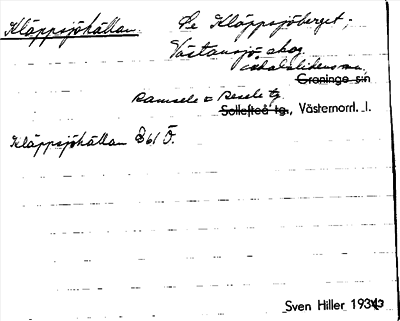 Kläppsjökällan Se Kläppsjöberget;
Västansjö skog
Graninge sn
Ramsele & Resele tg
Sollefteå tg., Västernorrl. l.
Kläppsjökällan 861 Ö.
Sven Hiller 1943